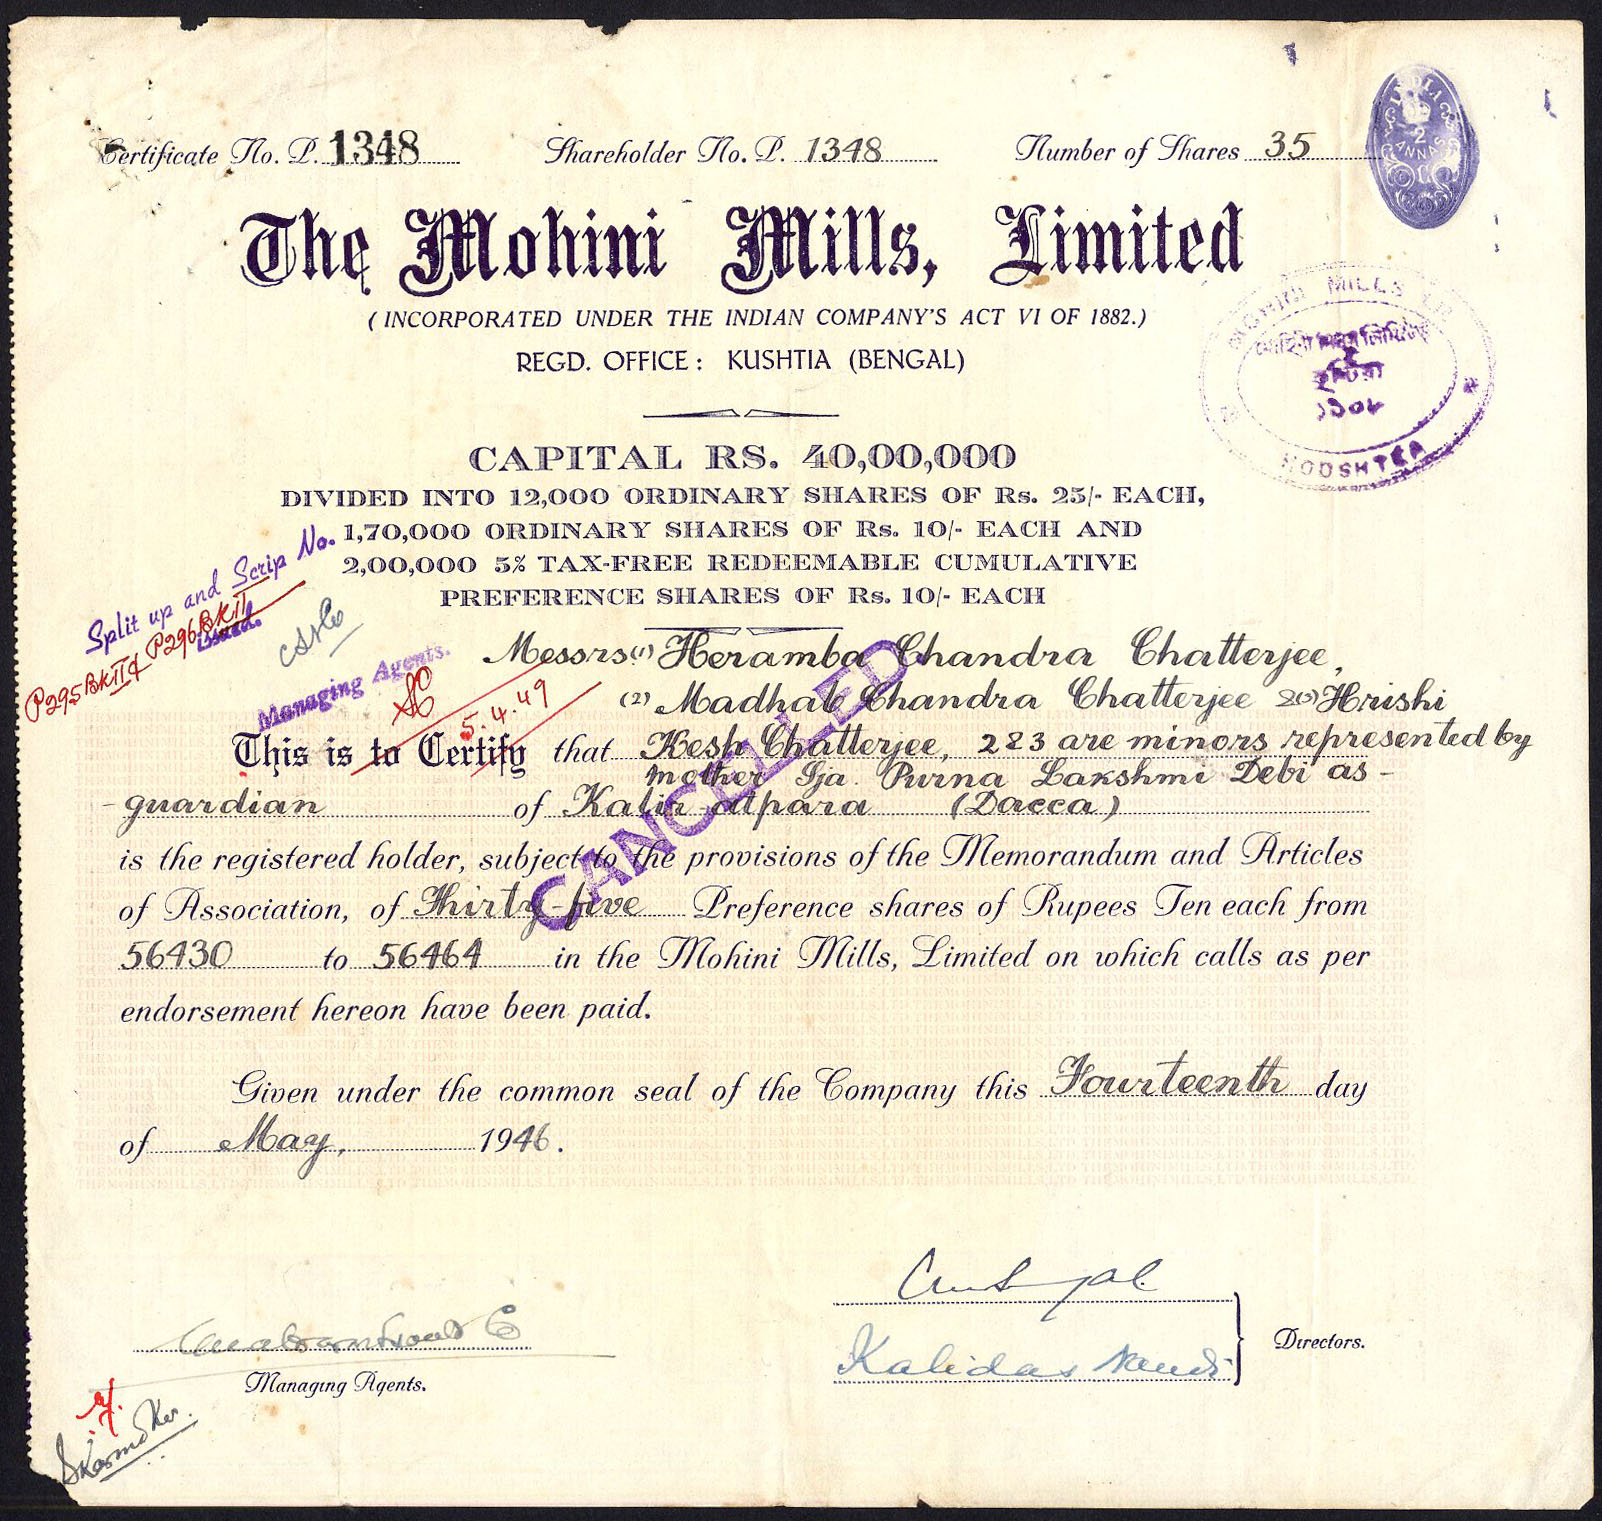 Certificate No. P. 1348 Shareholder No. P. 1348 Number of Shares 35
INDIA
2
ANNAS
The Mohini Mills, Limited
(INCORPORATED UNDER THE INDIAN COMPANY'S ACT VI OF 1882.)
REGD. OFFICE: KUSHTIA (BENGAL)
MOHINI MILLS LD
KOOSHTEA
CAPITAL RS. 40,00,000
DIVIDED INTO 12,000 ORDINARY SHARES OF Rs. 25/- EACH,
1,70,000 ORDINARY SHARES OF Rs. 10/- EACH AND
2,00,000 5% TAX-FREE REDEEMABLE CUMULATIVE
PREFERENCE SHARES OF Rs. 10/- EACH
Split up and Scrip No.
P295 BKII & P296 BKII issued.
Managing Agents.
5.4.49
CANCELLED
Messrs (1) Heramba Chandra Chatterjee,
(2) Madhab Chandra Chatterjee & (3) Hrishi
This is to Certify that Kesh Chatterjee, 2 & 3 are minors represented by
mother Sja. Purna Lakshmi Debi as -
- guardian of Kalir-atpara (Dacca)
is the registered holder, subject to the provisions of the Memorandum and Articles
of Association, of Thirty-five Preference shares of Rupees Ten each from
56430 to 56464 in the Mohini Mills, Limited on which calls as per
endorsement hereon have been paid.
Given under the common seal of the Company this Fourteenth day
of May, 1946.
Kalidas Nandi
Directors.
Managing Agents.